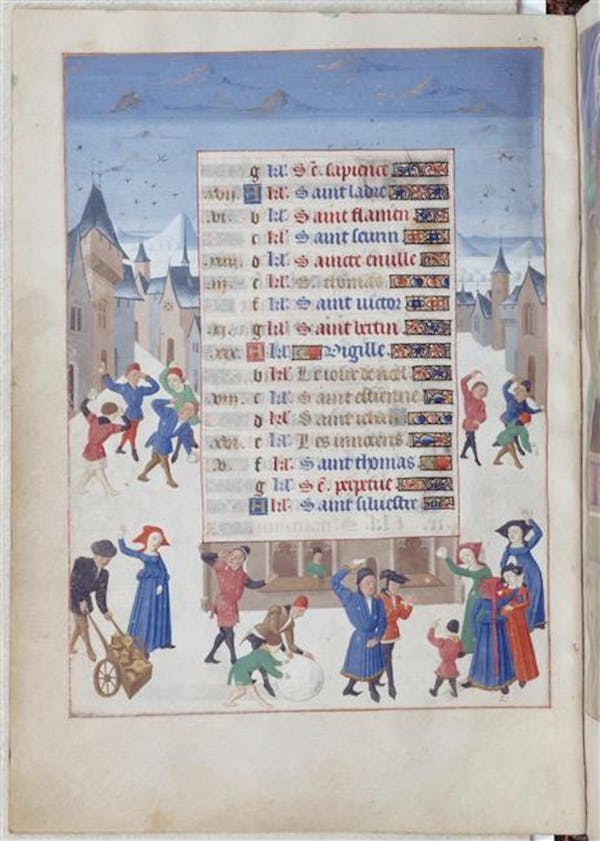 g kl' Se. sapience
.xvii. A kl' Saint ladre
.vi. b kl' Saint flamen
c kl' Saint seurin
d kl' Saincte
.iii. e kl' S. thomas
f kl' Saint victor
.xi. g kl' Saint bertin
.xix. A kl' Vigille.
b kl' Le iour de noel
.viii. c kl' Saint estienne
d kl' Saint iehan
.xvi. e kl' Les innocens
.v. f kl' Saint thomas
g kl' Se. perpetue
A kl' Saint silvestre